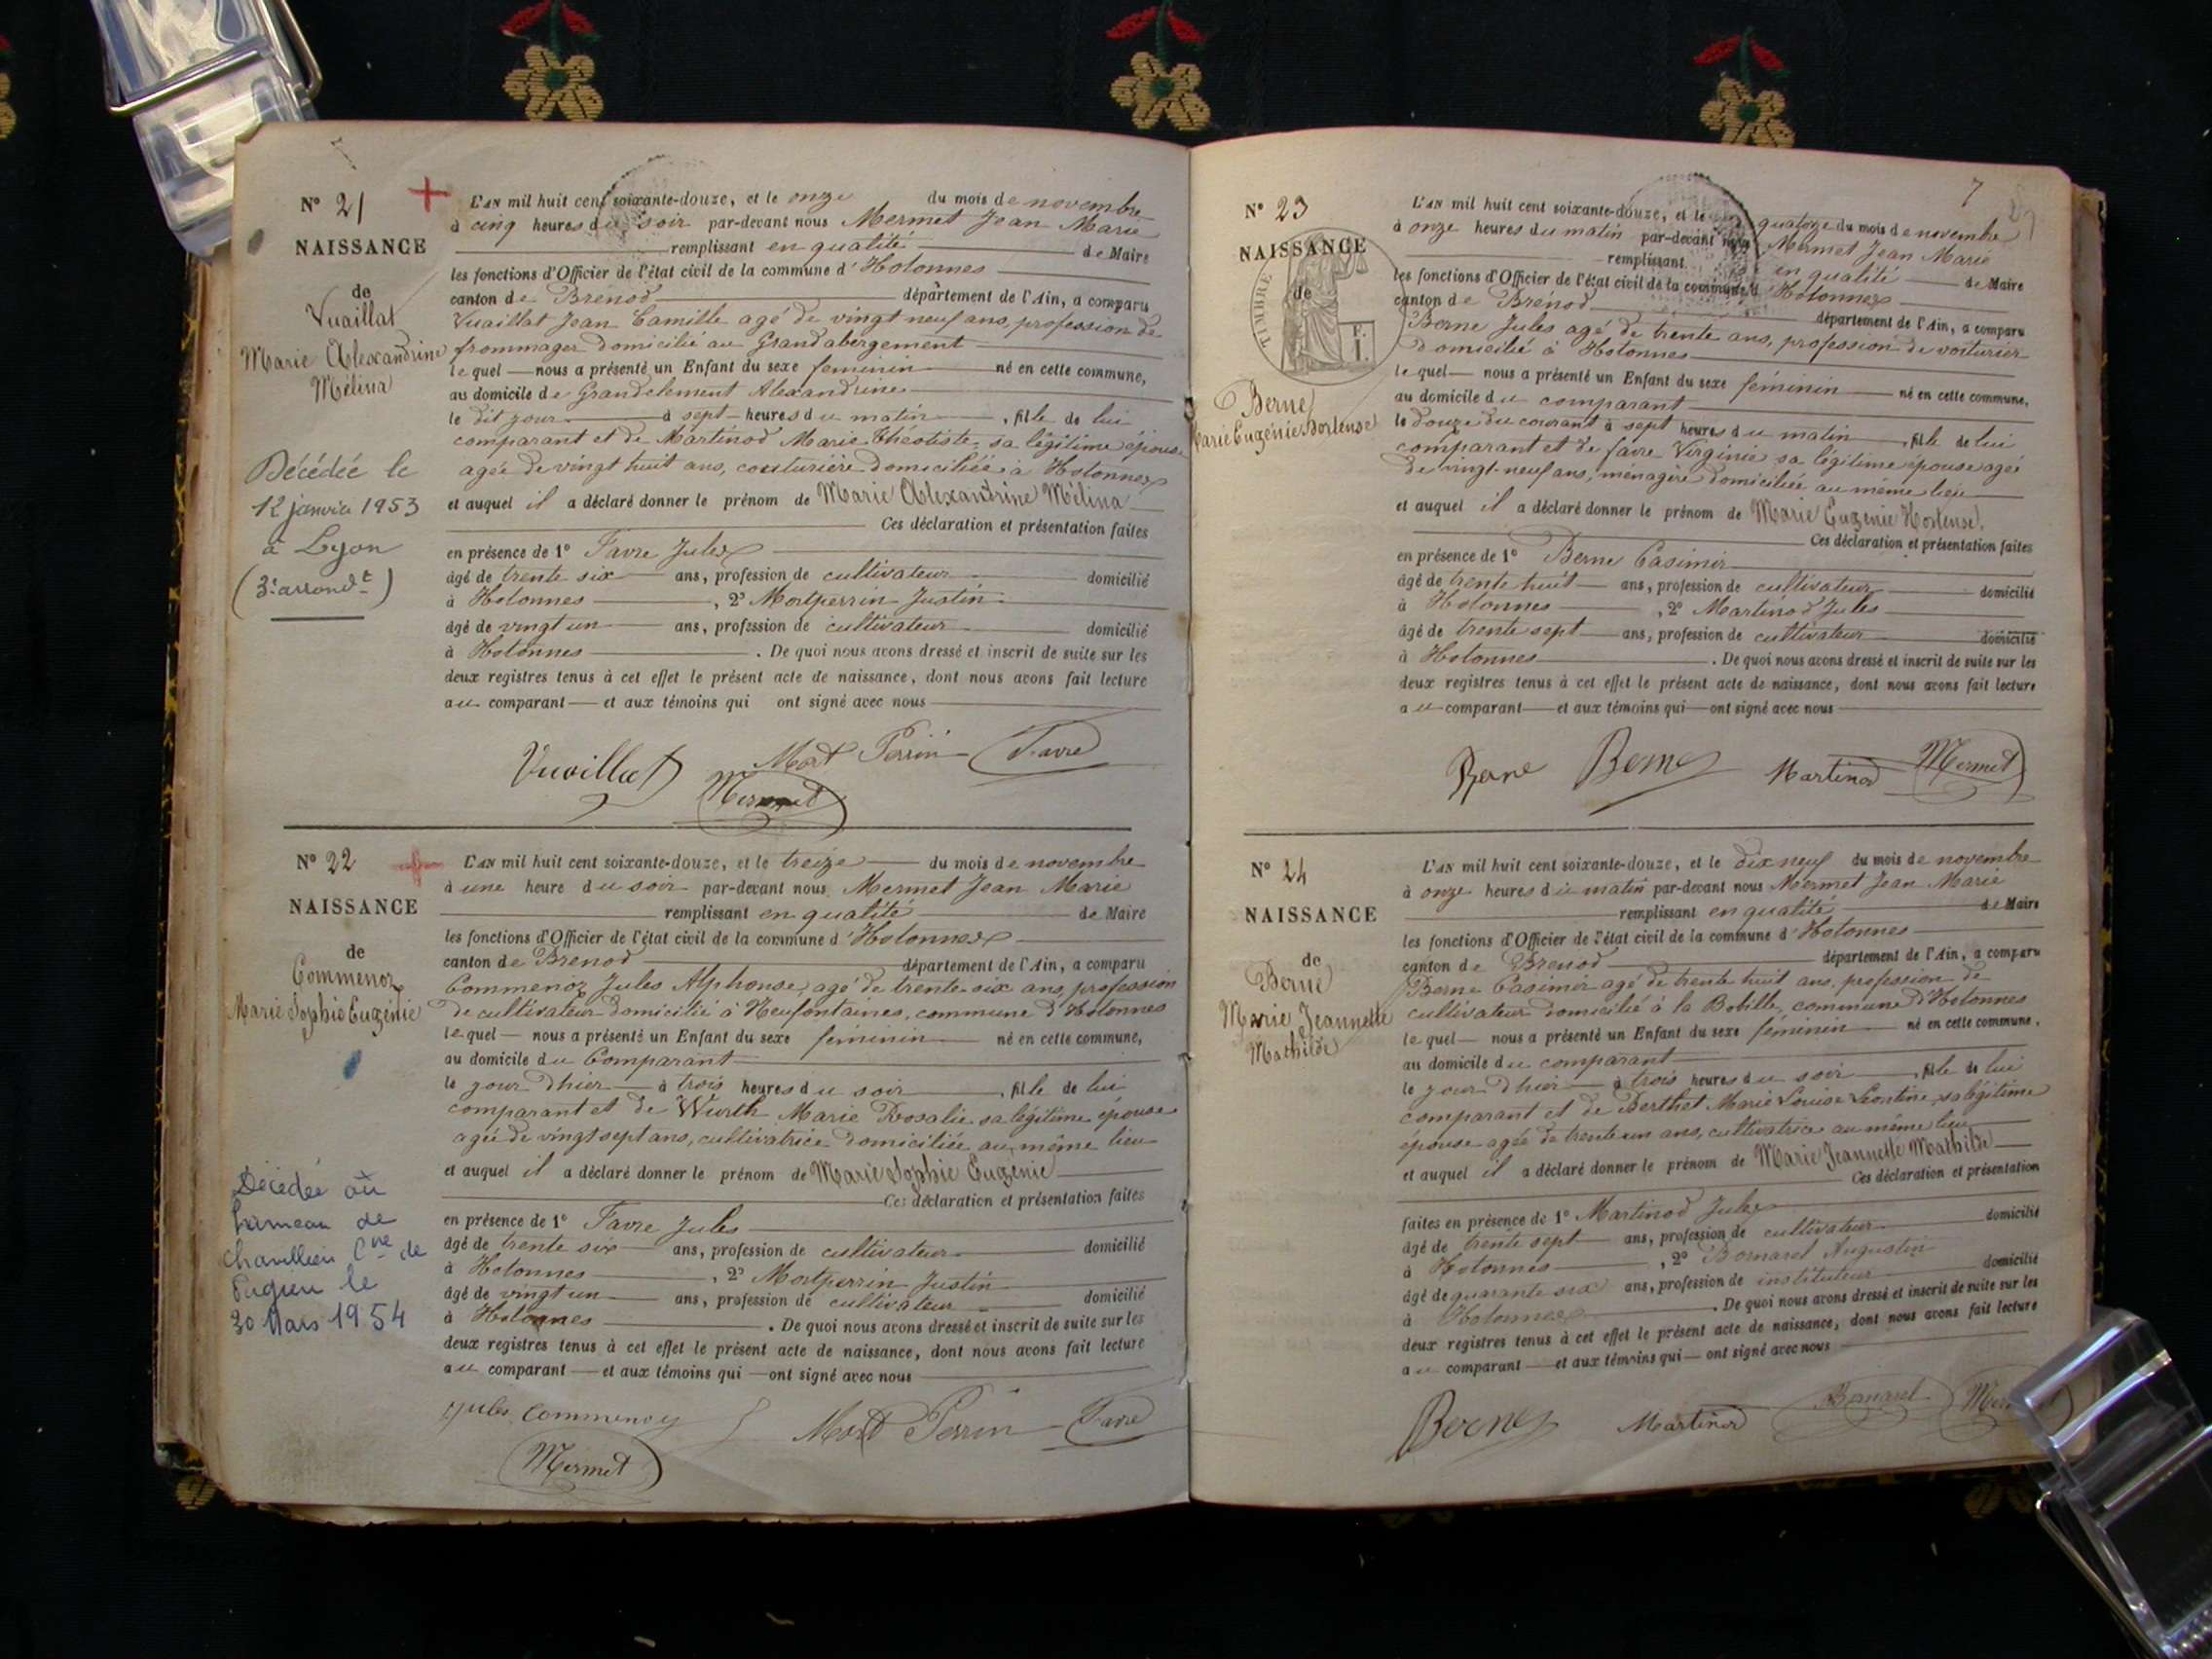 N° 21
NAISSANCE
de
Vuaillat
Marie Alexandrine
Mélina
Décédée le
12 janvier 1953
à Lyon
(3e arrondt)
L'AN mil huit cent soixante-douze, et le onze du mois de novembre
à cinq heures du soir par-devant nous Mermet Jean Marie
remplissant en qualité de Maire
les fonctions d'Officier de l'état civil de la commune d'Hotonnes
canton de Brénod département de l'Ain, a comparu
Vuaillat Jean Camille agé de vingt neuf ans, profession de
frommager domicilié au Grandabergement
le quel nous a présenté un Enfant du sexe feminin né en cette commune,
au domicile de Grandclement Alexandrine
le dit jour à sept heures du matin, fille de lui
comparant et de Martinod Marie Théotiste sa légitime épouse
agée de vingt huit ans, couturière domiciliée à Hotonnes
et auquel il a déclaré donner le prénom de Marie Alexandrine Mélina
Ces déclaration et présentation faites
en présence de 1° Favre Jules
âgé de trente six ans, profession de cultivateur domicilié
à Hotonnes, 2° Mortperrin Justin
âgé de vingt un ans, profession de cultivateur domicilié
à Hotonnes. De quoi nous avons dressé et inscrit de suite sur les
deux registres tenus à cet effet le présent acte de naissance, dont nous avons fait lecture
au comparant et aux témoins qui ont signé avec nous
Vuaillat Mort Perrin Favre
Mermet
N° 22
NAISSANCE
de
Commenoz
Marie Sophie Eugénie
Décédée au
hameau de
Cne de
Pugieu le
30 Mars 1954
L'AN mil huit cent soixante-douze, et le treize du mois de novembre
à une heure du soir par-devant nous Mermet Jean Marie
remplissant en qualité de Maire
les fonctions d'Officier de l'état civil de la commune d'Hotonnes
canton de Brenod département de l'Ain, a comparu
Commenoz Jules Alphonse, agé de trente six ans, profession
de cultivateur domicilié à Neufontaines, commune d'Hotonnes
le quel nous a présenté un Enfant du sexe féminin né en cette commune,
au domicile du Comparant
le jour d'hier à trois heures du soir, fille de lui
comparant et de Wurth Marie Rosalie sa légitime épouse
agée de vingt sept ans, cultivatrice domiciliée au même lieu
et auquel il a déclaré donner le prénom de Marie Sophie Eugénie
Ces déclaration et présentation faites
en présence de 1° Favre Jules
âgé de trente six ans, profession de cultivateur domicilié
à Hotonnes, 2° Mortperrin Justin
âgé de vingt un ans, profession de cultivateur domicilié
à Hotonnes. De quoi nous avons dressé et inscrit de suite sur les
deux registres tenus à cet effet le présent acte de naissance, dont nous avons fait lecture
au comparant et aux témoins qui ont signé avec nous
Jules Commenoz Mort Perrin Favre
Mermet
7
N° 23
NAISSANCE
de
TIMBRE
Berne
Marie Eugénie Hortense
L'AN mil huit cent soixante-douze, et le quatorze du mois de novembre
à onze heures du matin par-devant nous Mermet Jean Marie
remplissant en qualité de Maire
les fonctions d'Officier de l'état civil de la commune d'Hotonnes
canton de Brénod département de l'Ain, a comparu
Berne Jules agé de trente ans, profession de voiturier
domicilié à Hotonnes
le quel nous a présenté un Enfant du sexe féminin né en cette commune,
au domicile du comparant
le douze du courant à sept heures du matin, fille de lui
comparant et de favre Virginie sa légitime épouse agée
de vingt-neuf ans, ménagère domiciliée au même lieu
et auquel il a déclaré donner le prénom de Marie Eugénie Hortense.
Ces déclaration et présentation faites
en présence de 1° Berne Casimir
âgé de trente huit ans, profession de cultivateur domicilié
à Hotonnes, 2° Martinod Jules
âgé de trente sept ans, profession de cultivateur domicilié
à Hotonnes. De quoi nous avons dressé et inscrit de suite sur les
deux registres tenus à cet effet le présent acte de naissance, dont nous avons fait lecture
au comparant et aux témoins qui ont signé avec nous
Berne Berne Martinod Mermet
N° 24
NAISSANCE
de
Berne
Marie Jeannette
Mathilde
L'AN mil huit cent soixante-douze, et le dix neuf du mois de novembre
à onze heures du matin par-devant nous Mermet Jean Marie
remplissant en qualité de Maire
les fonctions d'Officier de l'état civil de la commune d'Hotonnes
canton de Brenod département de l'Ain, a comparu
Berne Casimir agé de trente huit ans, profession de
cultivateur domicilié à la Bobille, commune d'Hotonnes
le quel nous a présenté un Enfant du sexe féminin né en cette commune,
au domicile du comparant
le jour d'hier à trois heures du soir, fille de lui
comparant et de Berthet Marie Louise Léontine, sa légitime
épouse agée de trente un ans, cultivatrice au même lieu
et auquel il a déclaré donner le prénom de Marie Jeannette Mathilde
Ces déclaration et présentation
faites en présence de 1° Martinod Jules
âgé de trente sept ans, profession de cultivateur domicilié
à Hotonnes, 2° Bornarel Augustin
âgé de quarante six ans, profession de instituteur domicilié
à Hotonnes. De quoi nous avons dressé et inscrit de suite sur les
deux registres tenus à cet effet le présent acte de naissance, dont nous avons fait lecture
au comparant et aux témoins qui ont signé avec nous
Berne Martinod Bornarel